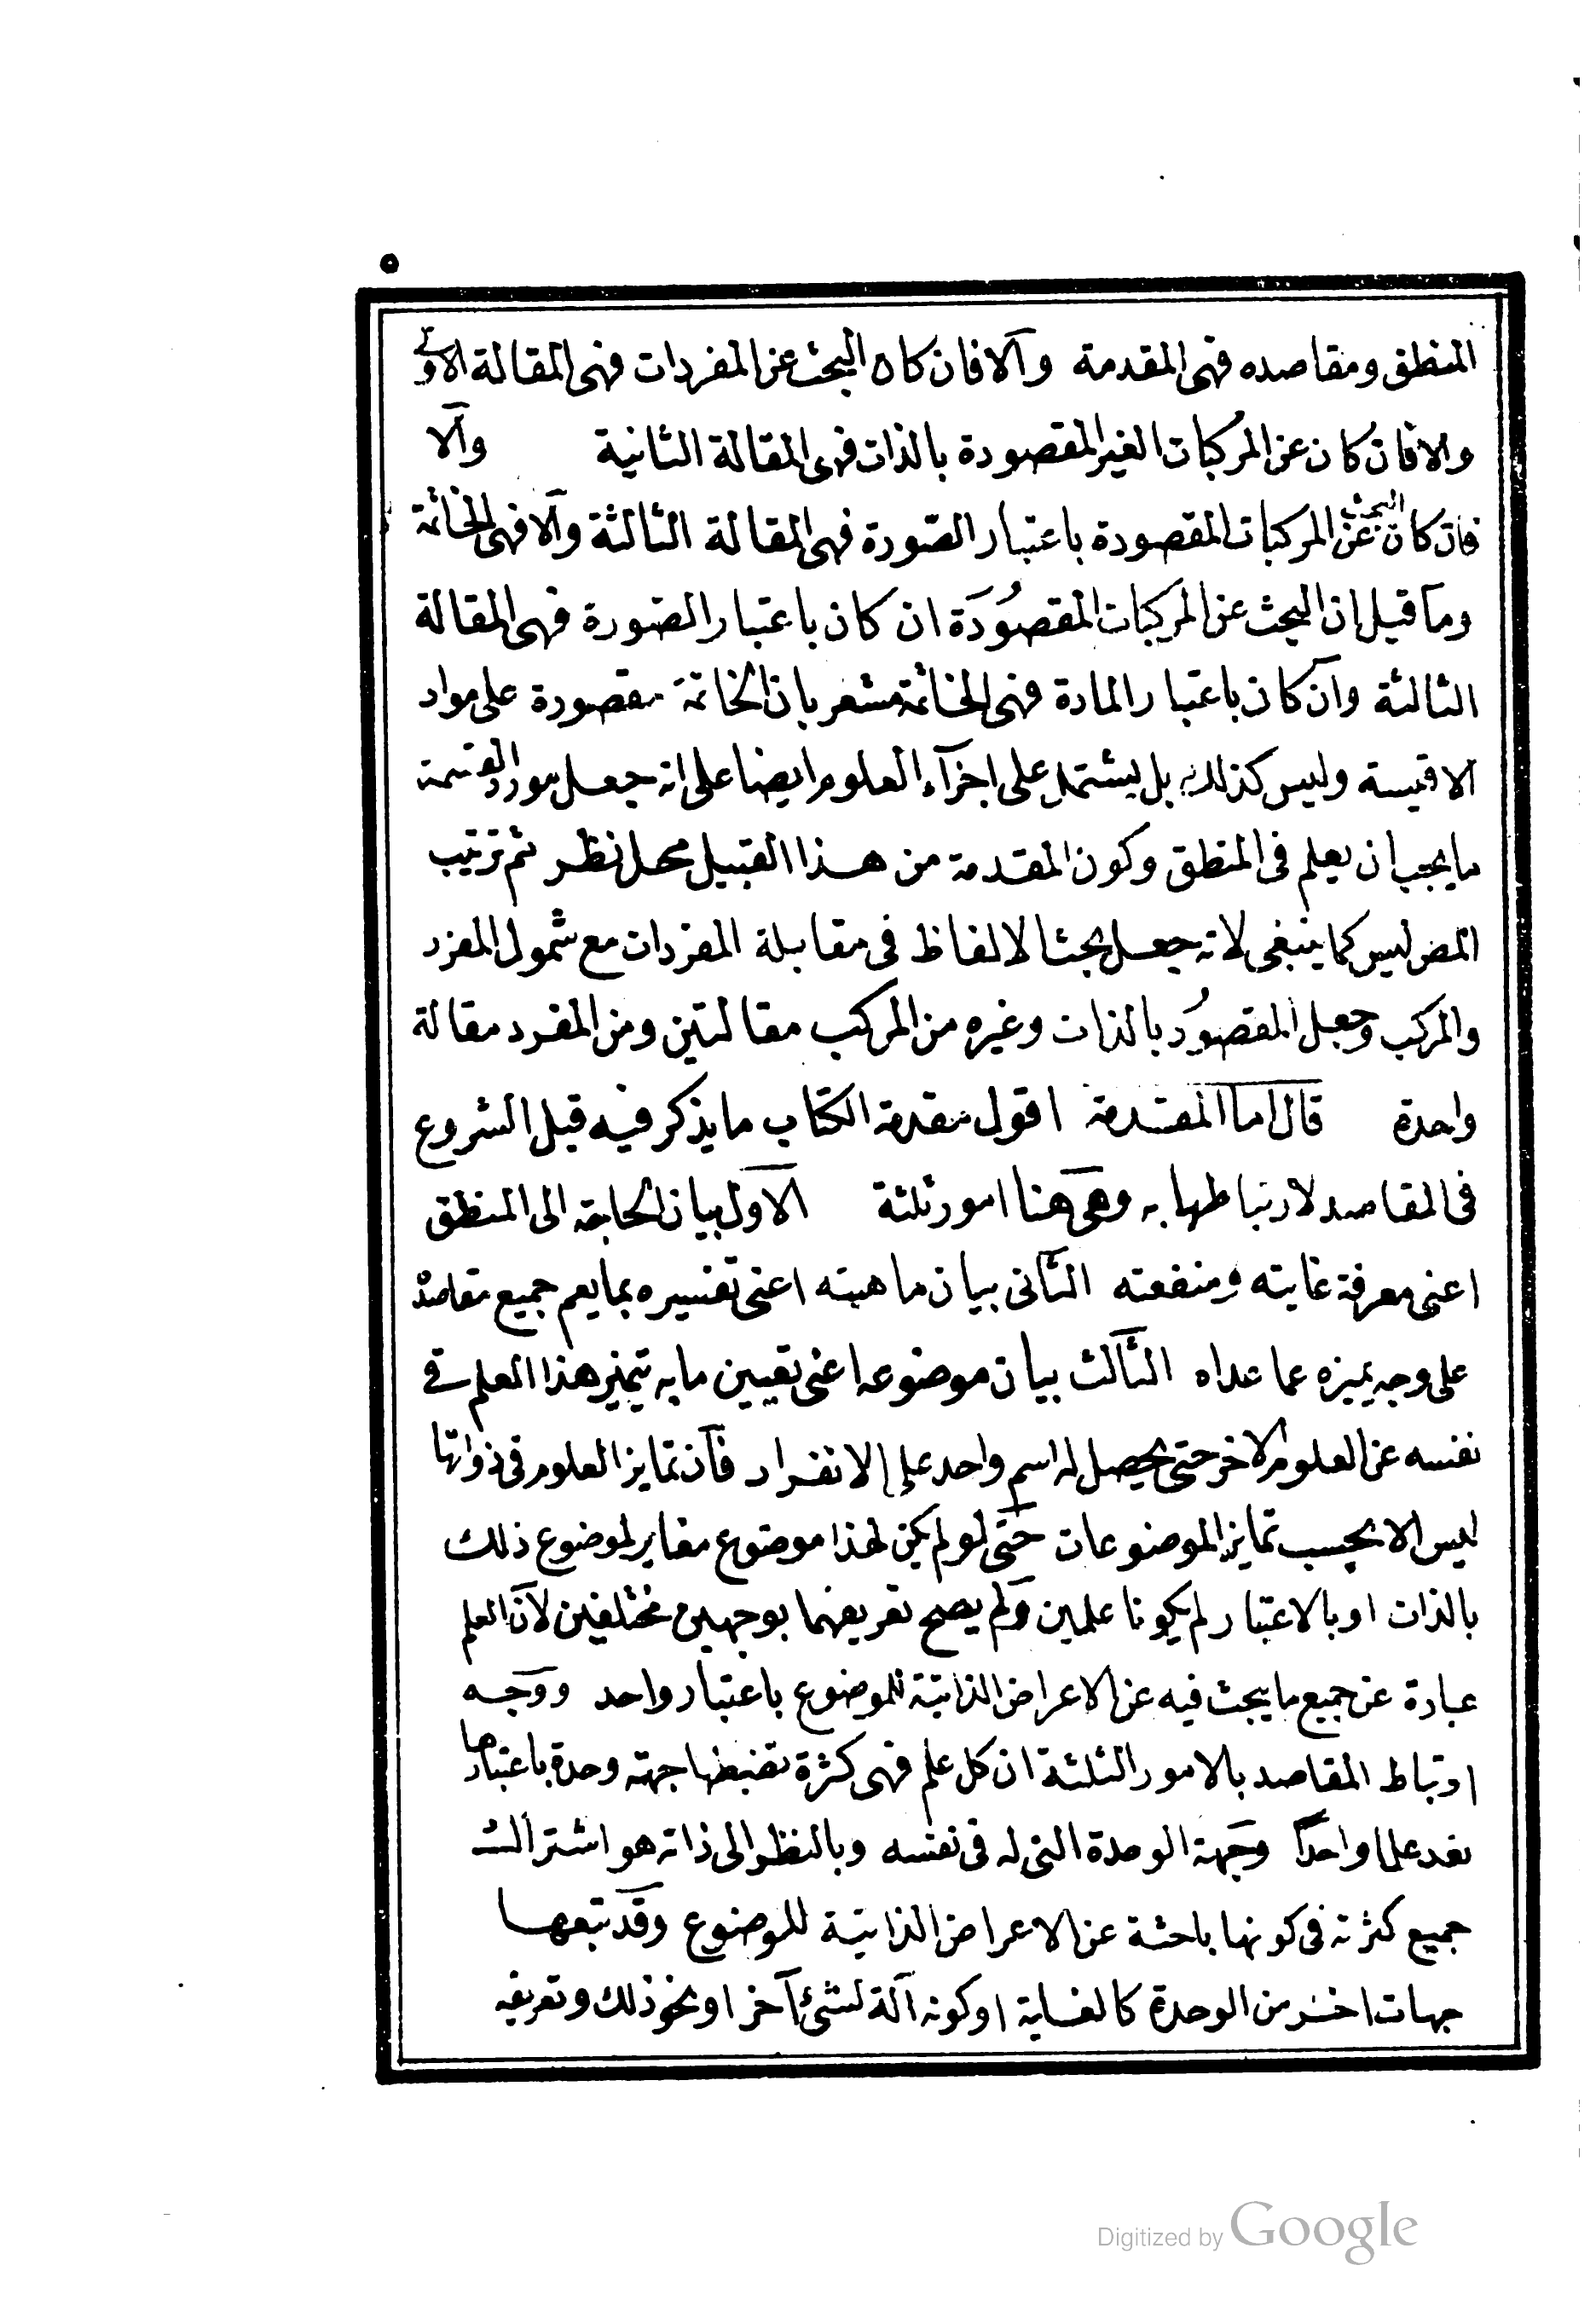 ٥
المنطق ومقاصده فهى المقدمة والا فان كان البحث عن المفردات فهى المقالة الاولى
والا فان كان عن المركبات الغير المقصودة بالذات فهى المقالة الثانية والا
فان كان البحث عن المركبات المقصودة باعتبار الصّورة فهى المقالة الثالثة والا فهى الخاتمة
وما قيل ان البحث عن المركبات المقصُودَة ان كان باعتبار الصورة فهى المقالة
الثالثة وان كان باعتبار المادة فهى الخاتمة مشعر بان الخاتمة مقصورة على مواد
الاقيسة وليس كذلك بل يشتمل على اجزآء العلوم ايضا على انه جعل مورد القسمة
ما يجب ان يعلم فى المنطق وكون المقدمة من هذا القبيل محل نظر ثم ترتيب
المص ليس كما ينبغى لانه جعل بحث الالفاظ فى مقابلة المفردات مع شمول المفرد
والمركب وجعل المقصُود بالذات وغيره من المركب مقالتين ومن المفرد مقالة
واحدة قال اما المقدمة اقول مقدمة الكتاب ما يذكر فيه قبل الشروع
فى المقاصد لارتباطها به وهى هنا امور ثلثة الاول بيان الحاجة الى المنطق
اعنى معرفة غايته ومنفعته الثانى بيان ماهيته اعنى تفسيره بما يعم جميع مقاصده
على وجه يميزه عما عداه الثالث بيان موضوعه اعنى تعيين ما به يتميز هذا العلم فى
نفسه عن العلوم الاخر حتى يحصل له اسم واحد على الانفراد فان تمايز العلوم فى ذواتها
ليس الا بحسب تمايز الموضوعات حتى لو لم يكن لهذا موضوع مغاير لموضوع ذلك
بالذات او بالاعتبار لم يكونا علمين ولم يصح تعريفهما بوجهين مختلفين لان العلم
عبارة عن جميع ما يبحث فيه عن الاعراض الذاتية للموضوع باعتبار واحد ووجه
ارتباط المقاصد بالامور الثلثة ان كل علم فهى كثرة تضبطها جهة وحدة باعتبارها
تعد علما واحدًا وجهة الوحدة التى له فى نفسه وبالنظر الى ذاته هو اشتراك
جميع كثرته فى كونها باحثة عن الاعراض الذاتية للموضوع وقد تتبعها
جهات اخر من الوحدة كالغاية او كونه آلة لشئ آخر او نحو ذلك وتعريفه
Digitized by Google